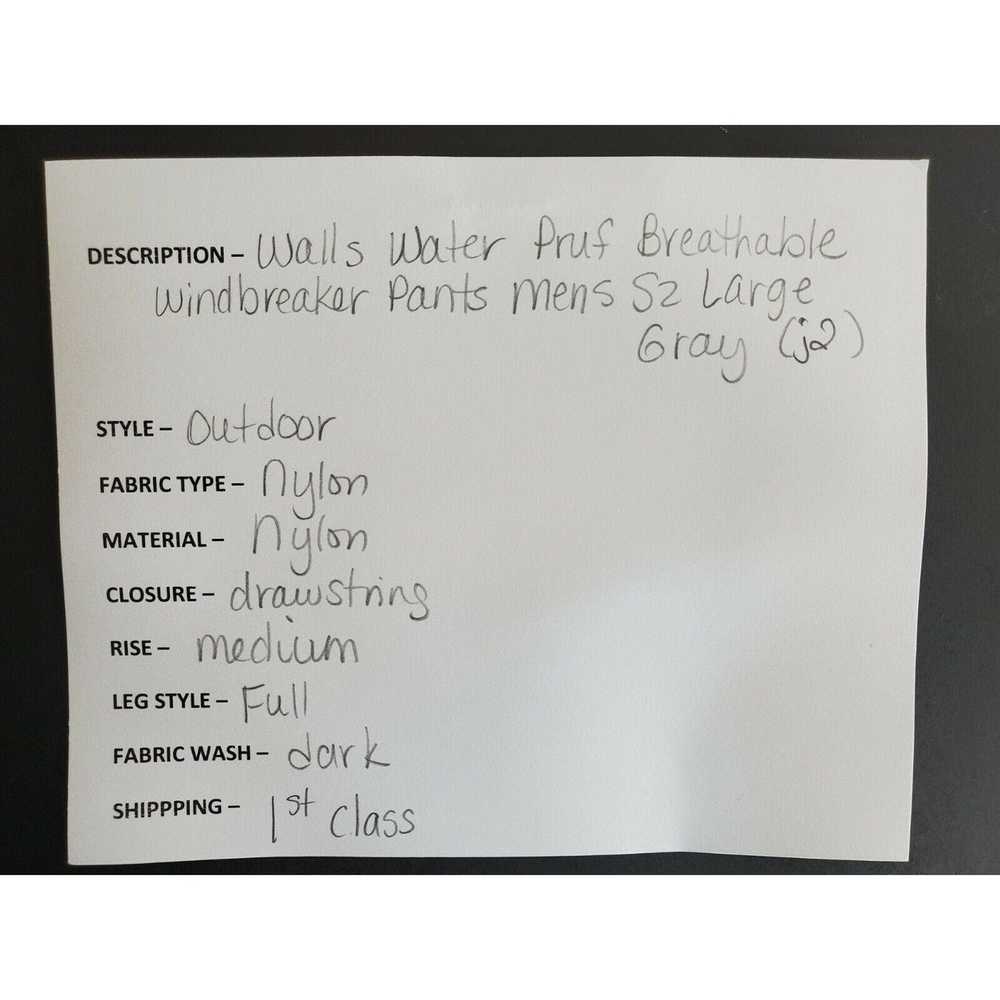 DESCRIPTION – Walls Water Pruf Breathable
Windbreaker Pants mens Sz Large
Gray (j2)
STYLE – Outdoor
FABRIC TYPE – nylon
MATERIAL – nylon
CLOSURE – drawstring
RISE – medium
LEG STYLE – Full
FABRIC WASH – dark
SHIPPPING – 1st Class